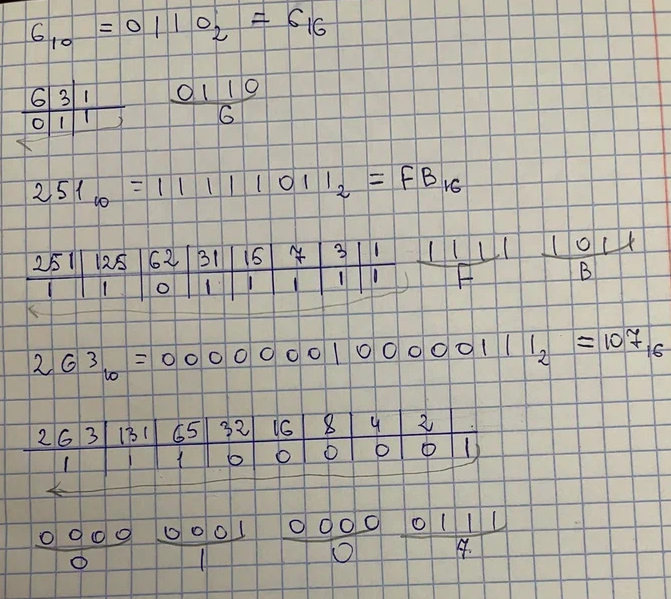 6₁₀ = 0110₂ = 6₁₆
6 3 1 0110
0 1 1 6
251₁₀ = 11111011₂ = FB₁₆
251 125 62 31 15 7 3 1 1111 1011
1 1 0 1 1 1 1 1 F B
263₁₀ = 0000000100000111₂ = 107₁₆
263 131 65 32 16 8 4 2
1 1 1 0 0 0 0 0 1
0000 0001 0000 0111
0 1 0 7